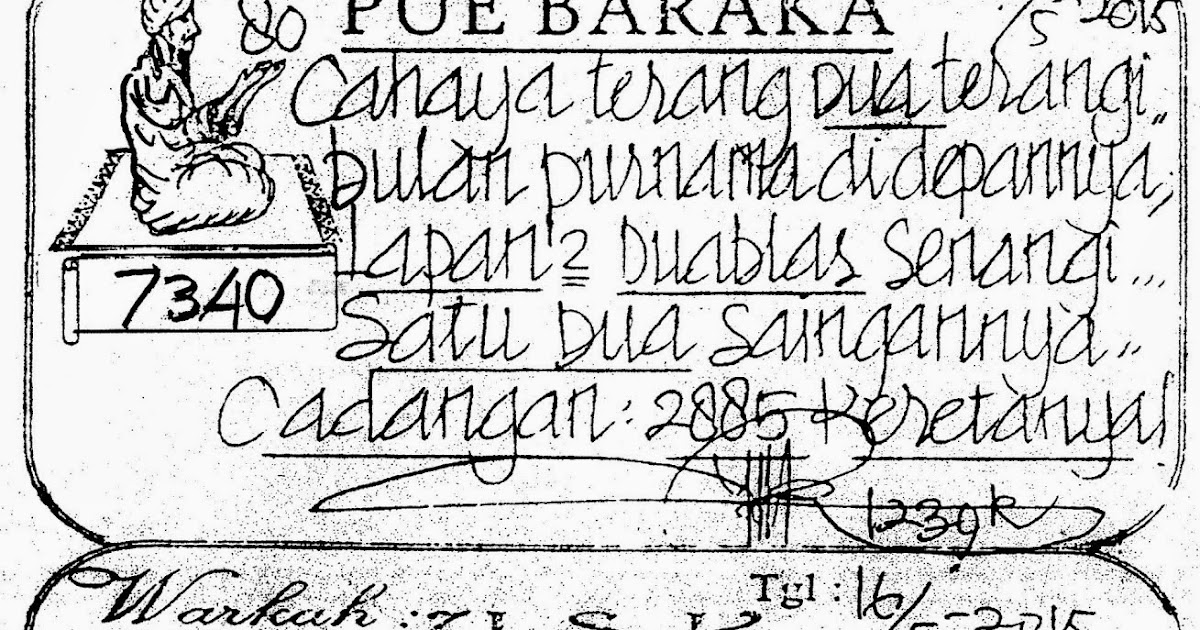 80 PUE BARAKA /5-2015
Cahaya terang Dua terangi..
bulan purnama didepannya,
Lapan² Duablas Senangi...
7340
Satu Dua Saingannya..
Cadangan: 2885 Keretanya!
1239 K
Warkah : Tgl : 16/5-2015